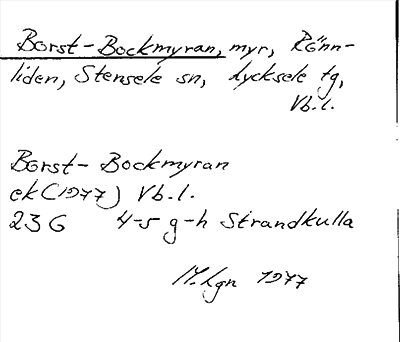 Borst-Bockmyran, myr, Rönn-
liden, Stensele sn, Lycksele tg,
Vb.l.
Borst-Bockmyran
ek (1977) Vb.l.
23G 4-5 g-h Strandkulla
M.Lgn 1977